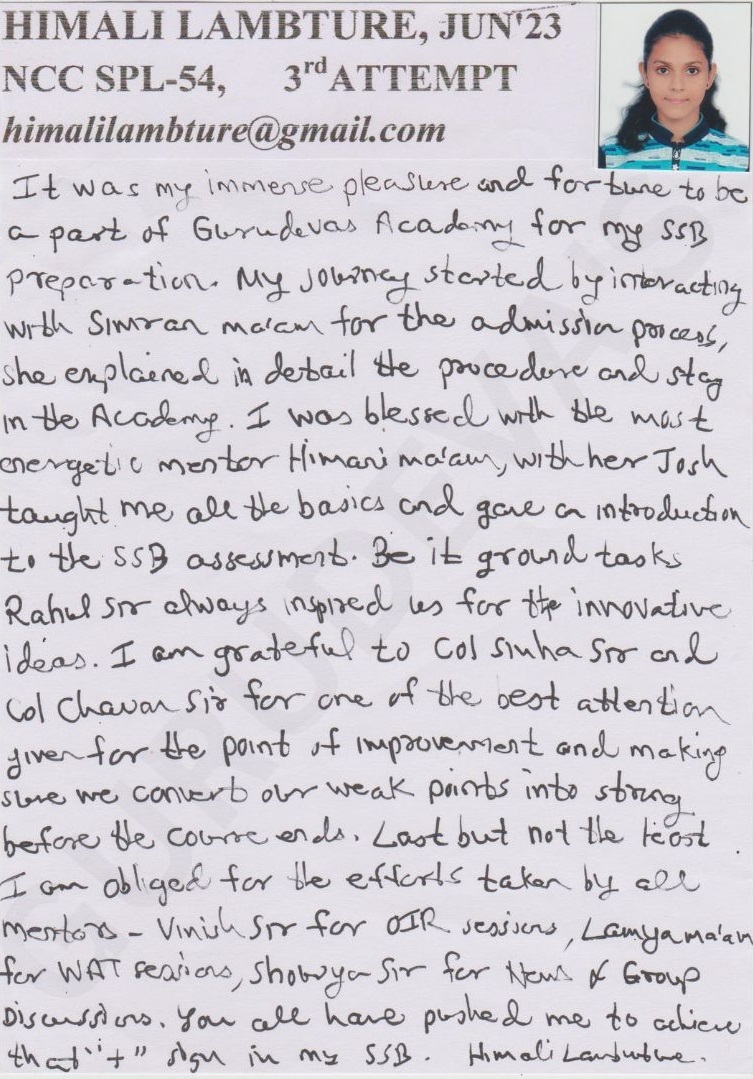 HIMALI LAMBTURE, JUN'23
NCC SPL-54, 3rd ATTEMPT
himalilambture@gmail.com
It was my immense pleasure and fortune to be
a part of Gurudevas Academy for my SSB
preparation. My journey started by interacting
with Simran ma'am for the admission process,
she explained in detail the procedure and stay
in the Academy. I was blessed with the most
energetic mentor Himani ma'am, with her Josh
taught me all the basics and gave an introduction
to the SSB assessment. Be it ground tasks
Rahul Sir always inspired us for the innovative
ideas. I am grateful to Col Sinha Sir and
Col Chavan Sir for one of the best attention
given for the point of improvement and making
sure we convert our weak points into strong
before the course ends. Last but not the least
I am obliged for the efforts taken by all
mentors - Vinish Sir for OIR sessions, Lamya ma'am
for WAT sessions, Shourya Sir for News & Group
Discussions. You all have pushed me to achieve
that "+" sign in my SSB. Himali Lambture.
GURUDEVA'S